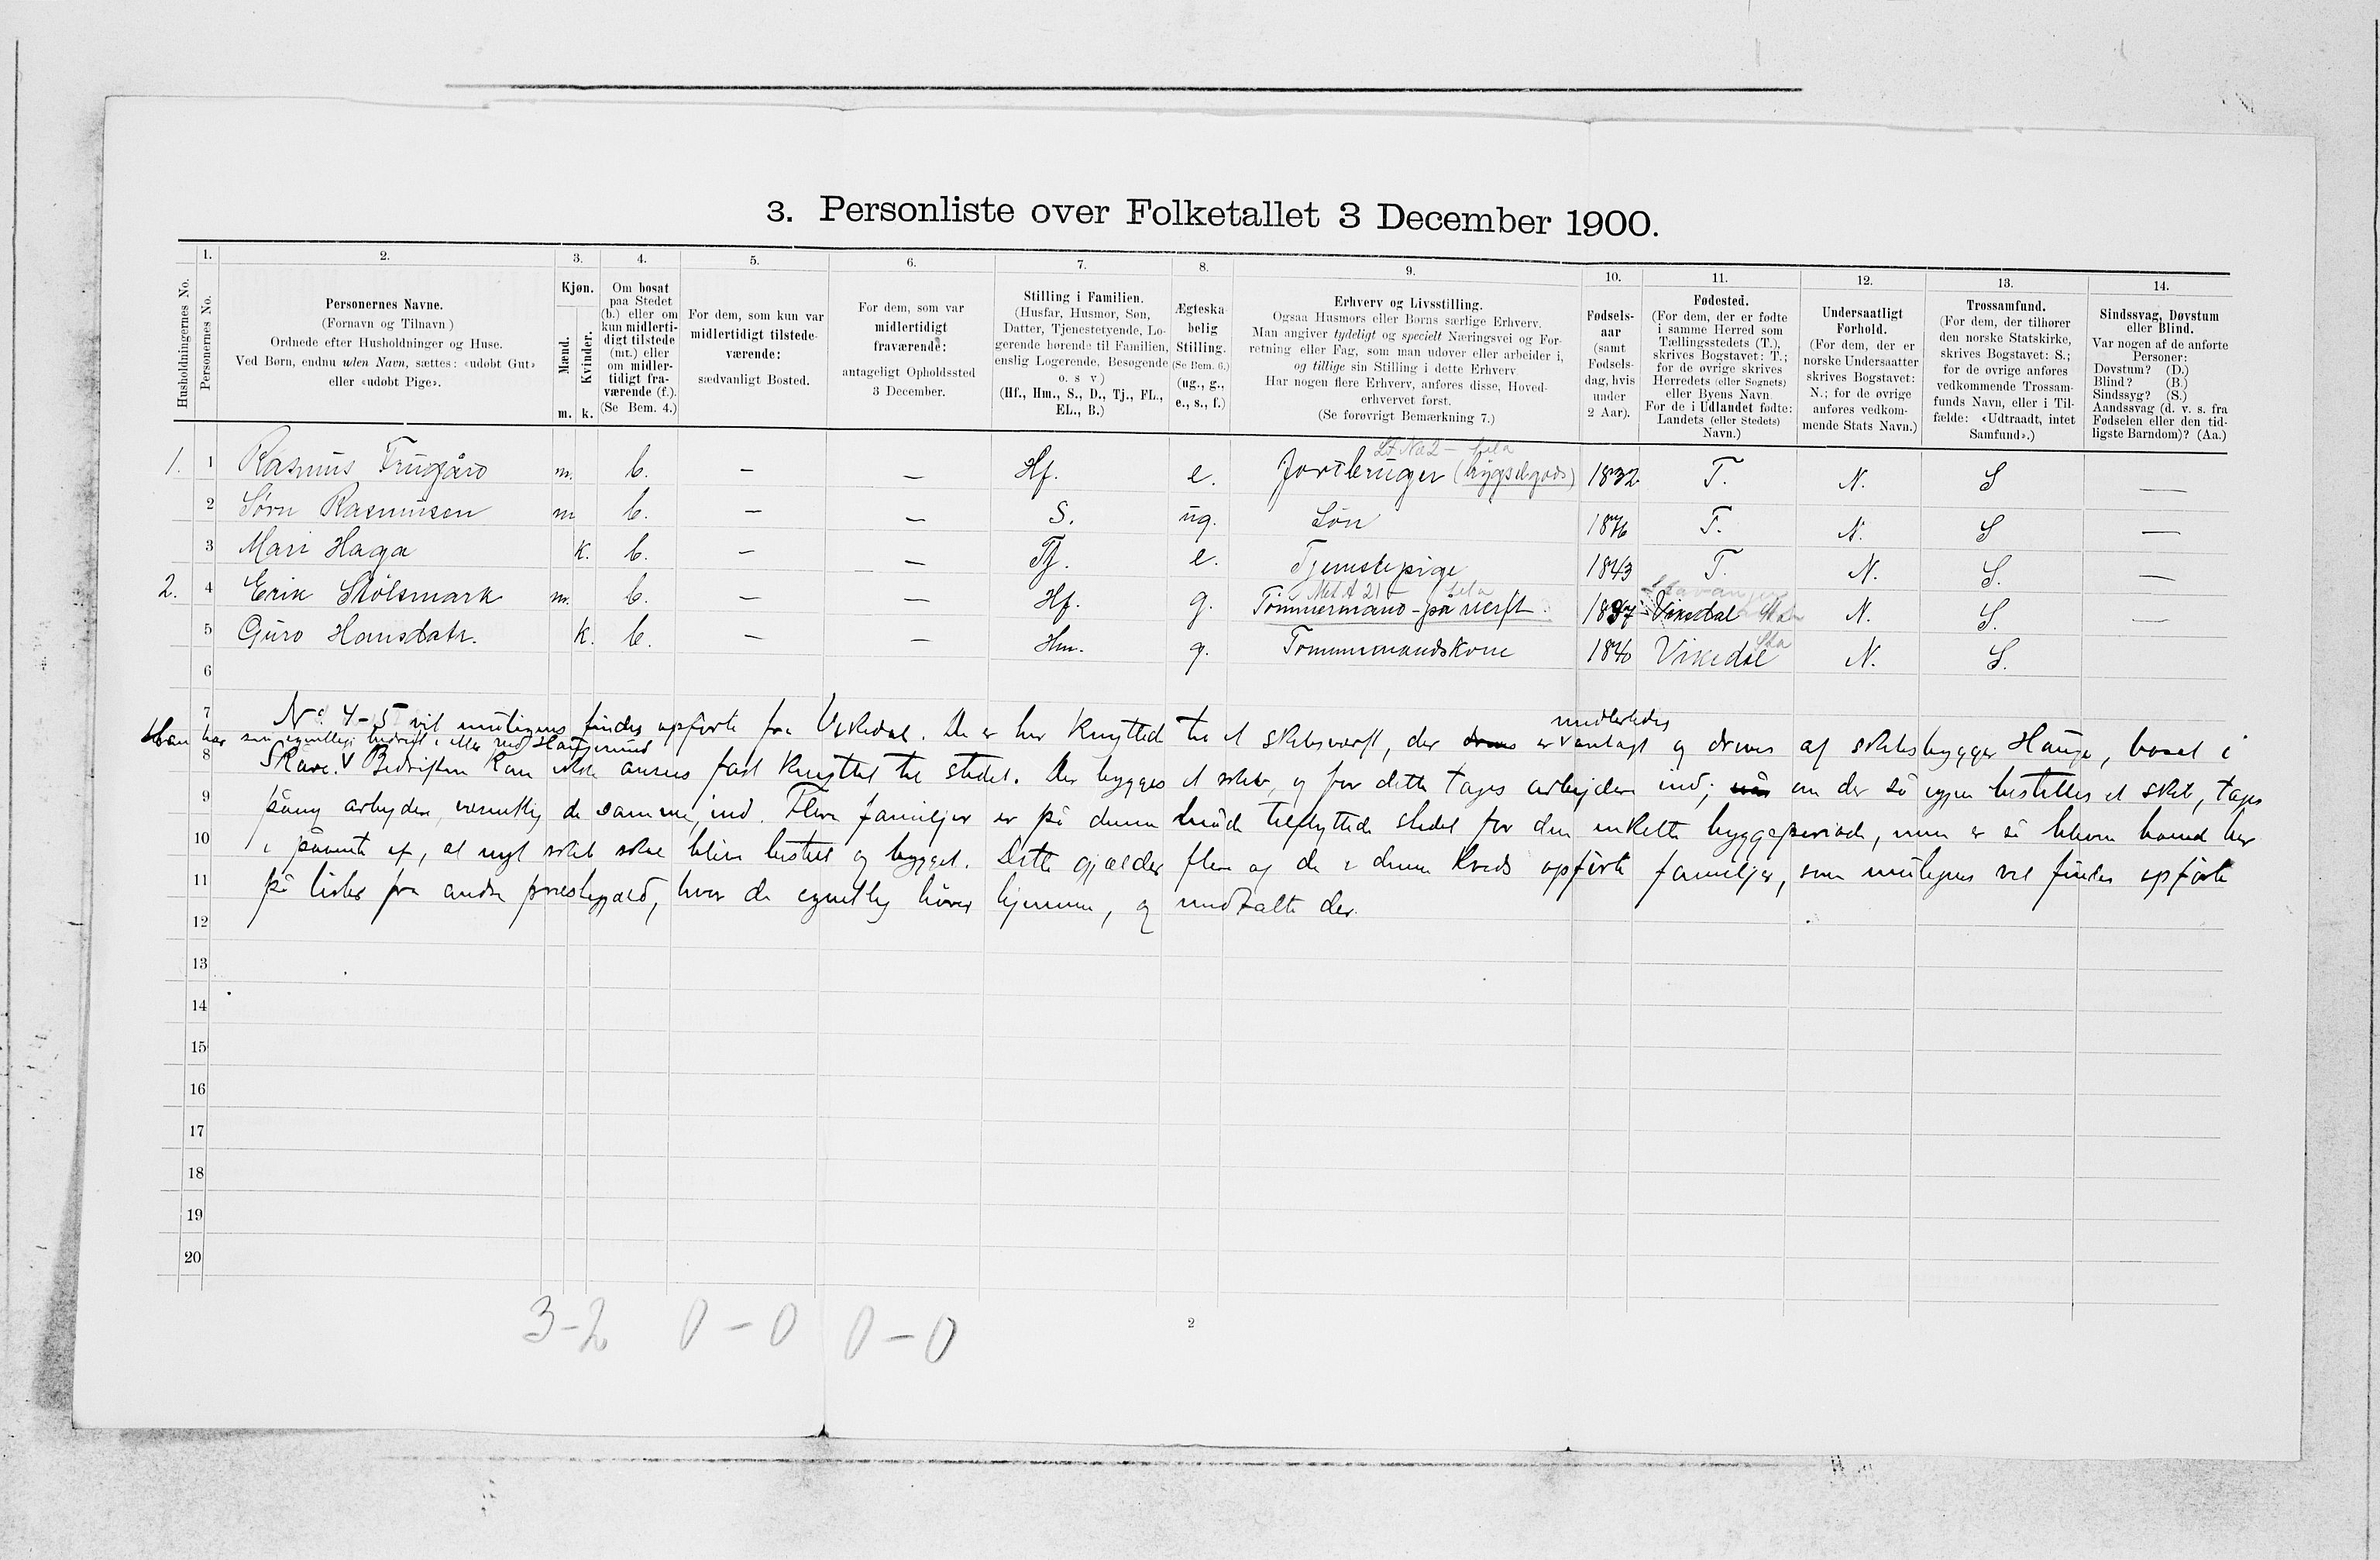 3. Personliste over Folketallet 3 December 1900.
Husholdningernes No.
1. Personernes No.
2. Personernes Navne.
(Fornavn og Tilnavn)
Ordnede efter Husholdninger og Huse.
Ved Børn, endnu uden Navn, sættes: «udøbt Gut»
eller «udøbt Pige».
3. Kjøn.
Mænd. m.
Kvinder. k.
4. Om bosat
paa Stedet
(b.) eller om
kun midlerti-
digt tilstede
(mt.) eller
om midler-
tidigt fra-
værende (f.).
(Se Bem. 4.)
5. For dem, som kun var
midlertidigt tilstede-
værende:
sædvanligt Bosted.
6. For dem, som var
midlertidigt
fraværende:
antageligt Opholdssted
3 December.
7. Stilling i Familien.
(Husfar, Husmor, Søn,
Datter, Tjenestetyende, Lo-
gerende hørende til Familien,
enslig Logerende, Besøgende
o. s v)
(Hf., Hm., S., D., Tj., FL.,
EL., B.)
8. Ægteska-
belig
Stilling.
(Se Bem. 6.)
(ug., g.,
e., s., f.)
9. Erhverv og Livsstilling.
Ogsaa Husmors eller Børns særlige Erhverv.
Man angiver tydeligt og specielt Næringsvei og For-
retning eller Fag, som man udøver eller arbeider i,
og tillige sin Stilling i dette Erhverv
Har nogen flere Erhverv, anføres disse, Hoved-
erhvervet først.
(Se forøvrigt Bemærkning 7.)
10. Fødsels-
aar
(samt
Fødsels-
dag, hvis
under
2 Aar).
11. Fødested.
(For dem, der er fødte
i samme Herred som
Tællingsstedets (T.),
skrives Bogstavet: T.;
for de øvrige skrives
Herredets (eller Sognets)
eller Byens Navn.
For de i Udlandet fødte:
Landets (eller Stedets)
Navn.)
12. Undersaatligt
Forhold.
(For dem, der er
norske Undersaatter
skrives Bogstavet:
N.; for de øvrige
anføres vedkom-
mende Stats Navn.)
13. Trossamfund.
(For dem, der tilhører
den norske Statskirke,
skrives Bogstavet: S.;
for de øvrige anføres
vedkommende Trossam-
funds Navn, eller i Til-
fælde: «Udtraadt, intet
Samfund».)
14. Sindssvag, Døvstum
eller Blind.
Var nogen af de anførte
Personer:
Døvstum? (D.)
Blind? (B.)
Sindssyg? (S.)
Aandssvag (d. v. s. fra
Fødselen eller den tid-
ligste Barndom)? (Aa.)
1. 1 Rasmus Trusgård m. b. – – Hf. e. Jordbruger (bygselgods) 1832 T. N. S –
2 Sørn Rasmussen m b. – – S. ug. Søn 1876 T. N. S –
3 Mari Haga k. b. – – Tj. e. Tjenestepige 1843 T. N. S. –
2. 4 Erik Stølsmark m. b. – – Hf. g. Tømmermand - på verft 1837 Vikedal N. S. –
5 Guro Hansdatr. k. b. – – Hm. g. Tømmermandskone 1840 Vikedal N. S.
6
7 No 4-5 vil muligens findes opførte fra Vikedal. De er her knytted til et skibsværft, der er midlertidig anlagt og drives af skibsbygger Hauge, bosat i
Han har sin egentlige bedrift i eller ved Haugesund
8 Skåre. V Bedriften kan ikke anses fast knyttet til stedet. Der bygges et skib, og for dette tages arbejdere ind; om der så igjen bestilles et skib, tages
9 påny arbejdere, væsentlig de samme, ind. Flere familjer er på denne måde tilflyttede stedet for den enkelte byggeperiode, men er så bleven boend her
10 i påvente af, at nyt skib skal blive bestilt og bygget. Dette gjælder flere af de i denne kreds opførte familjer, som muligens vil findes opførte
11 på lister fra andre præstegjæld, hvor de egentlig hører hjemme, og medtalte der.
12
13
14
15
16
17
18
19
20
3-2 0-0 0-0
2